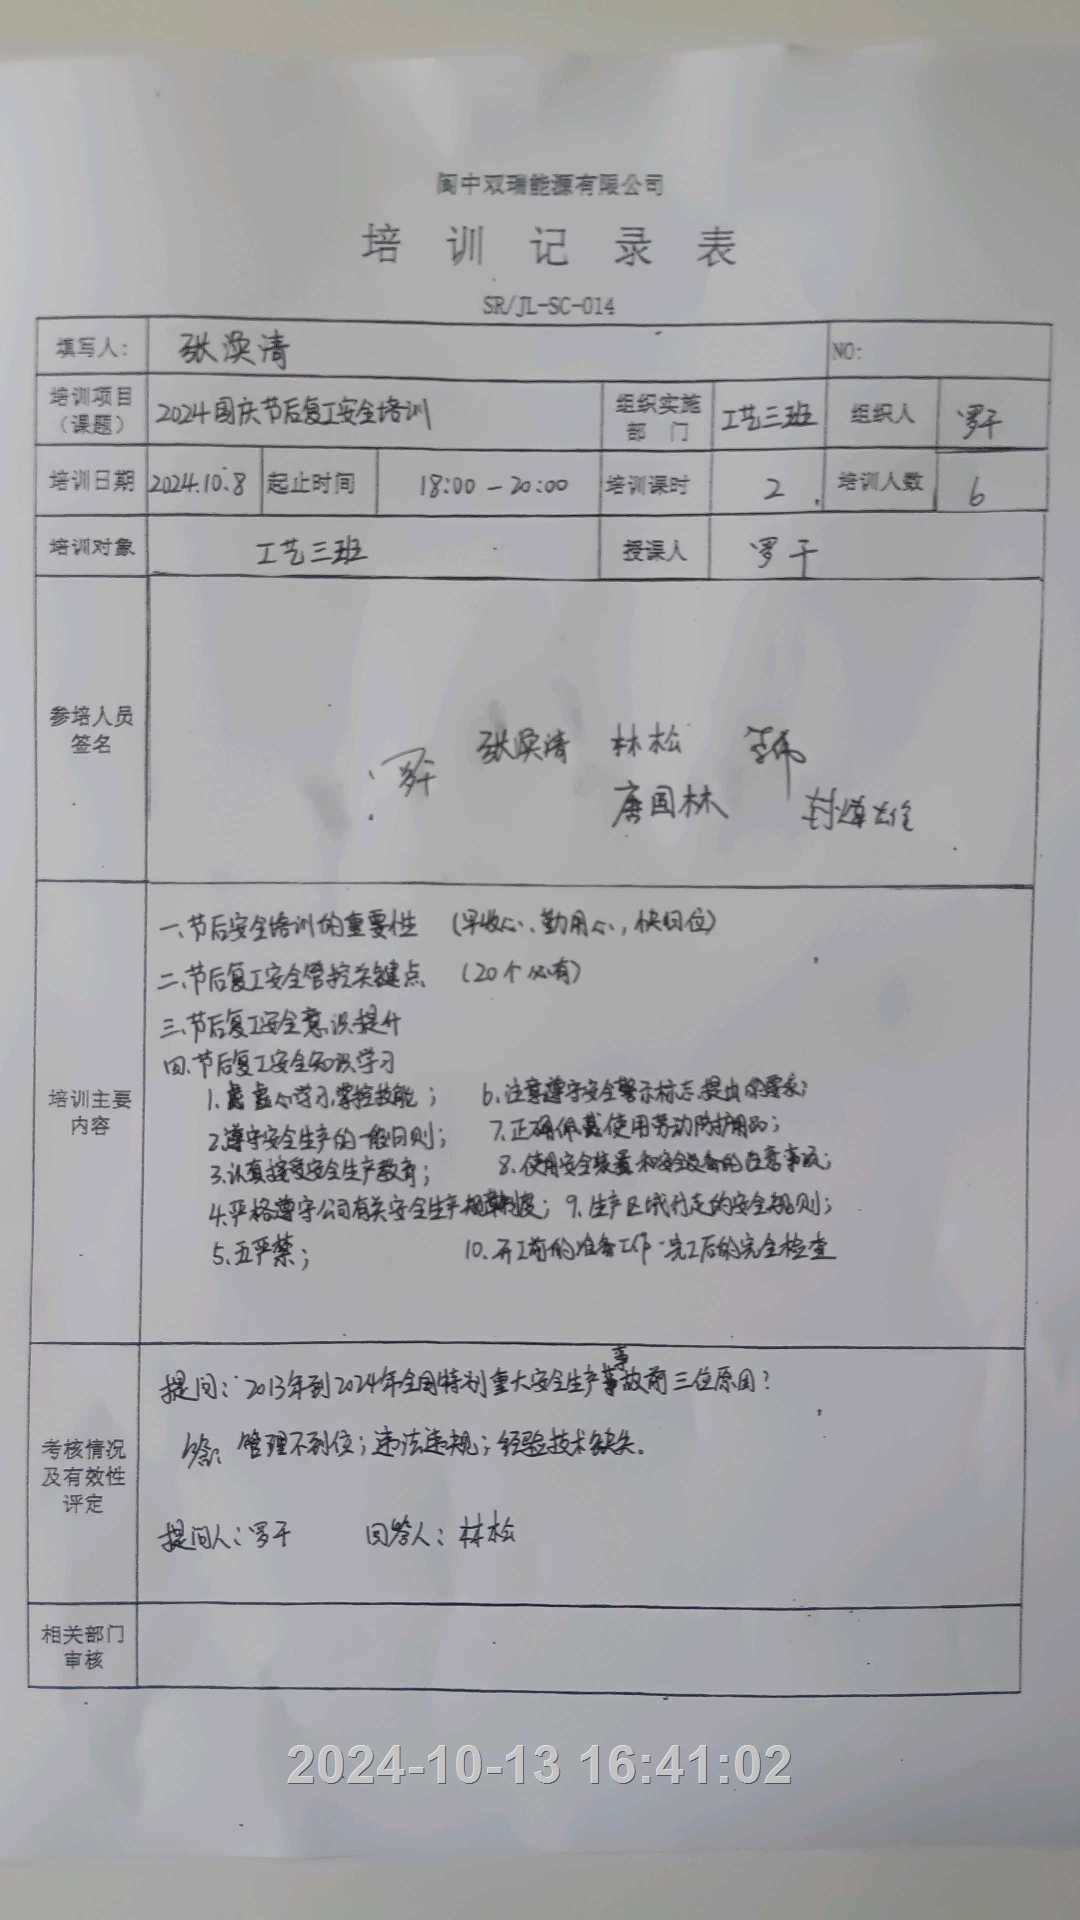 阆中双瑞能源有限公司
培训记录表
SR/JL-SC-014
填写人： 张涣清 NO:
培训项目（课题） 2024国庆节后复工安全培训 组织实施部门 工艺三班 组织人 罗干
培训日期 2024.10.8 起止时间 18:00-20:00 培训课时 2 培训人数 6
培训对象 工艺三班 授课人 罗干
参培人员签名
罗干 张涣清 林松
唐国林
培训主要内容
一、节后安全培训的重要性 (早收心、勤用心，快归位)
二、节后复工安全管控关键点 (20个必有)
三、节后复工安全意识提升
四、节后复工安全知识学习
1.虚心学习,掌控技能； 6.注意遵守安全警示标志,提出的要求;
2.遵守安全生产的一般日则； 7.正确佩戴使用劳动防护用品；
3.认真接受安全生产教育； 8.使用安全装置和安全设备的注意事项；
4.严格遵守公司有关安全生产规章制度； 9.生产区域行走的安全规则；
5.五严禁； 10.开工前的准备工作 完工后的完全检查
考核情况及有效性评定
提问：2013年到2024年全国特别重大安全生产事故前三位原因？
答：管理不到位；违法违规；经验技术缺失。
提问人：罗干 回答人：林松
相关部门审核
2024-10-13 16:41:02